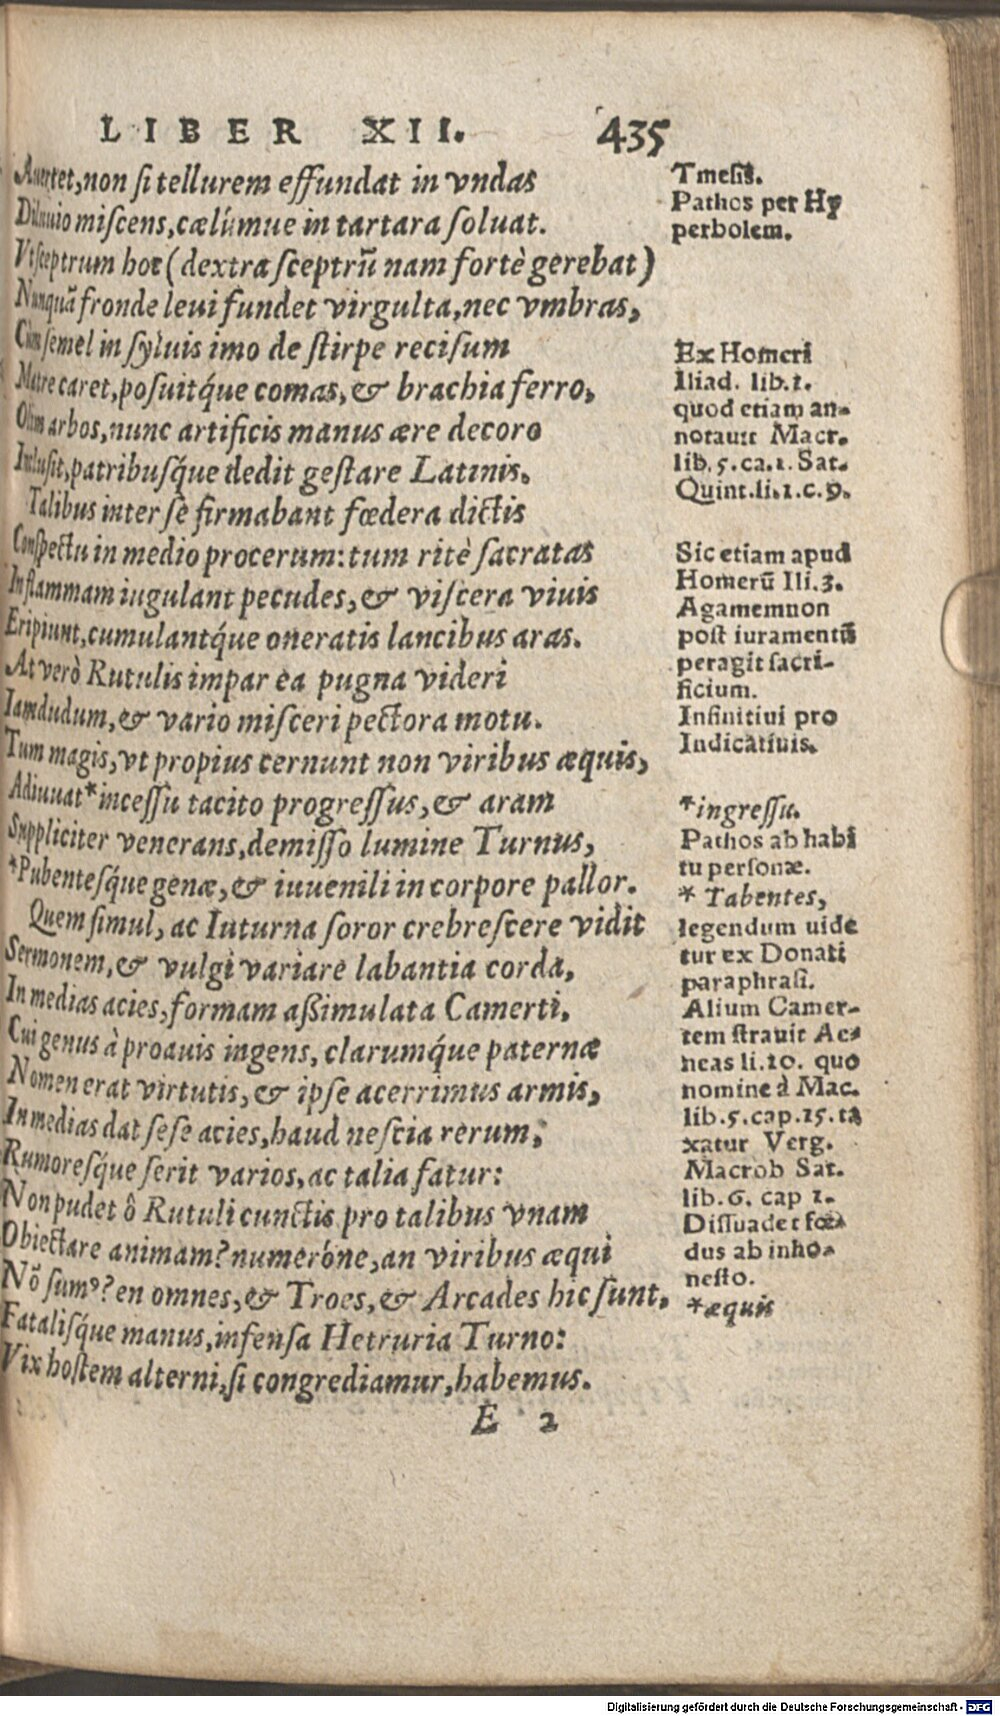 LIBER XII. 435
Auertet,non si tellurem effundat in vndas
Diluuio miscens,cælúmue in tartara soluat.
Vt sceptrum hoc (dextra sceptrũ nam fortè gerebat)
Nunquã fronde leui fundet virgulta,nec vmbras,
Cùm semel in syluis imo de stirpe recisum
Matre caret,posuitq́ue comas,& brachia ferro,
Olim arbos,nunc artificis manus ære decoro
Inclusit,patribusq́ue dedit gestare Latinis.
Talibus inter se firmabant fœdera dictis
Conspectu in medio procerum:tum ritè sacratas
In flammam iugulant pecudes,& viscera viuis
Eripiunt,cumulantq́ue oneratis lancibus aras.
At verò Rutulis impar ea pugna videri
Iamdudum,& vario misceri pectora motu.
Tum magis,vt propius cernunt non viribus æquis,
Adiuuat*incessu tacito progressus,& aram
Suppliciter venerans,demisso lumine Turnus,
*Pubentesq́ue genæ,& iuuenili in corpore pallor.
Quem simul, ac Iuturna soror crebrescere vidit
Sermonem,& vulgi variare labantia corda,
In medias acies,formam aßimulata Camerti,
Cui genus à proauis ingens, clarumq́ue paternæ
Nomen erat virtutis,& ipse acerrimus armis,
In medias dat sese acies,haud nescia rerum,
Rumoresq́ue serit varios,ac talia fatur:
Non pudet ô Rutuli cunctis pro talibus vnam
Obiectare animam? numeróne,an viribus æqui
Nõ sumꝰ? en omnes,& Troes,& Arcades hic sunt,
Fatalisq́ue manus,infensa Hetruria Turno:
Vix hostem alterni,si congrediamur,habemus.
E 2
Tmesis.
Pathos per Hy
perbolem.
Ex Homeri
Iliad. lib.1.
quod etiam an-
notauit Macr.
lib.5.ca.1.Sat.
Quint.li.1.c.9.
Sic etiam apud
Homerũ Ili.3.
Agamemnon
post iuramentũ
peragit sacri-
ficium.
Infinitiui pro
Indicatiuis.
*ingressu.
Pathos ab habi
tu personæ.
* Tabentes,
legendum uide
tur ex Donati
paraphrasi.
Alium Camer-
tem strauit Ae-
neas li.10. quo
nomine à Mac.
lib.5.cap.15.ta
xatur Verg.
Macrob Sat.
lib.6. cap 1.
Dissuadet fœ-
dus ab inho-
nesto.
*æquis
Digitalisierung gefördert durch die Deutsche Forschungsgemeinschaft - DFG